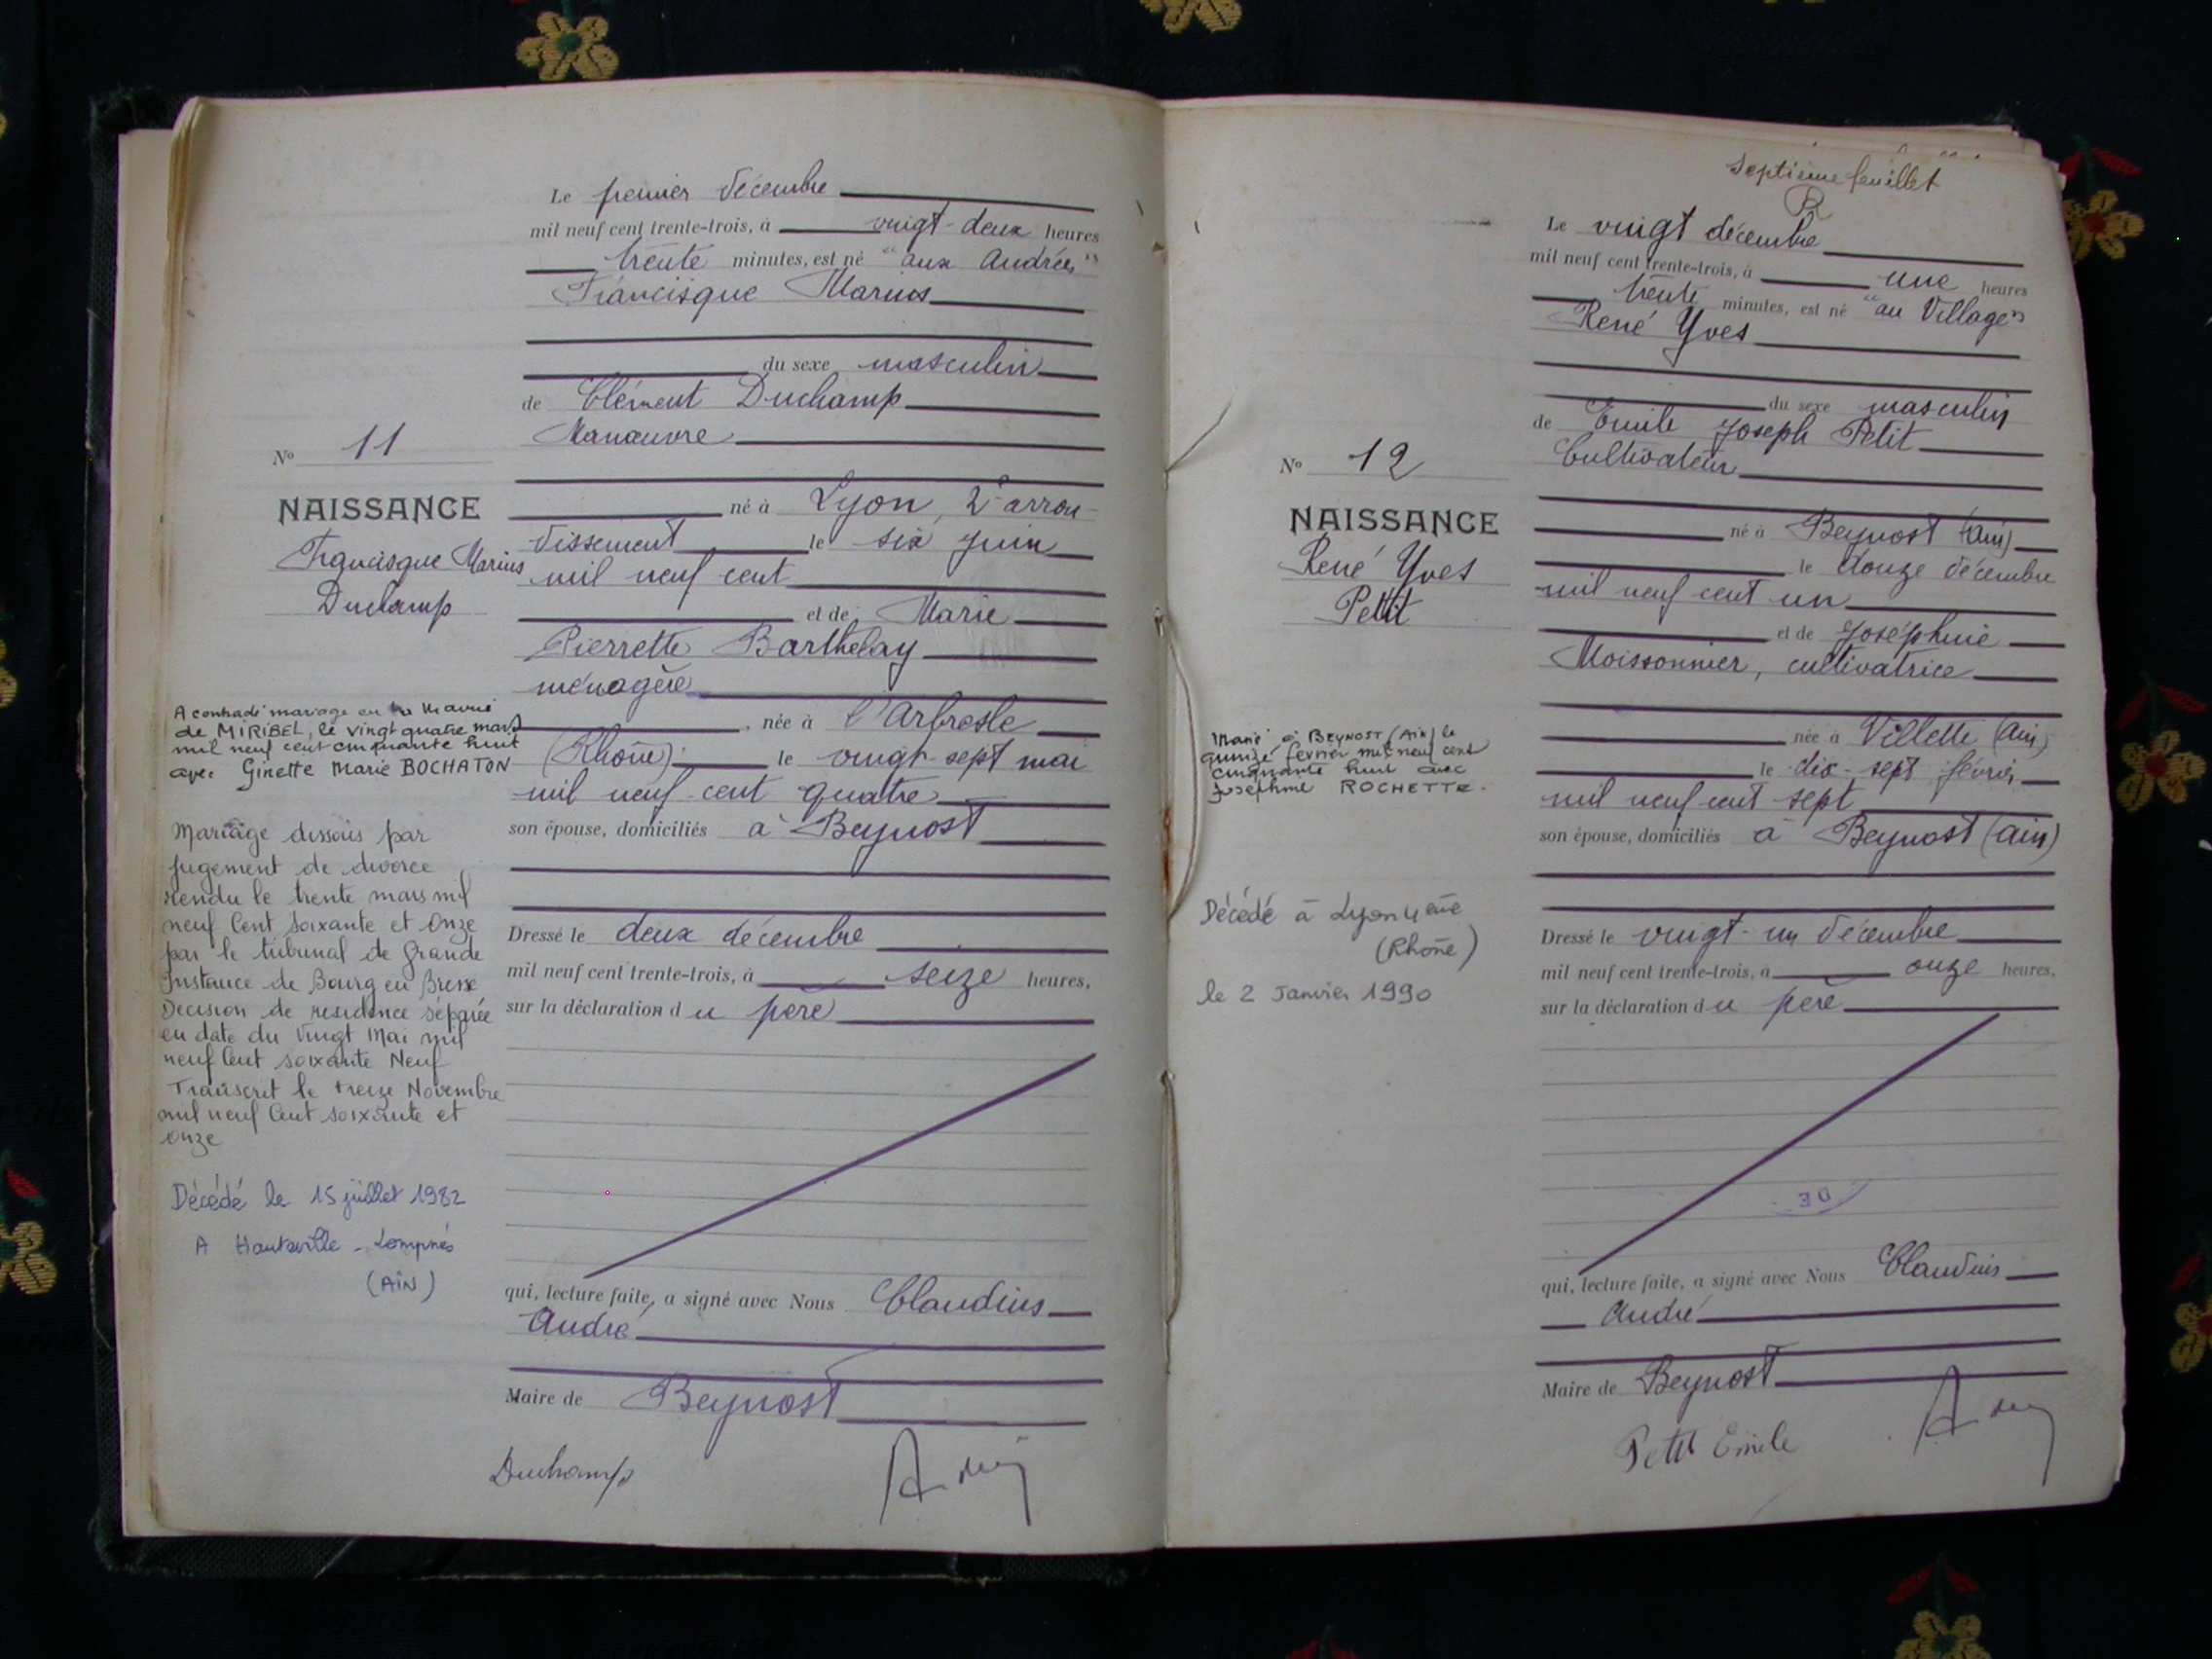 Le premier décembre
mil neuf cent trente-trois, à vingt-deux heures
trente minutes, est né "aux Andrés"
Francisque Marius
du sexe masculin
de Clément Duchamp
Manœuvre
né à Lyon, 2e arron-
dissement le six juin
mil neuf cent
et de Marie
Pierrette Barthelay
ménagère
née à l'Arbresle
(Rhône) le vingt-sept mai
mil neuf cent quatre
son épouse, domiciliés à Beynost
Dressé le deux décembre
mil neuf cent trente-trois, à seize heures,
sur la déclaration du père
qui, lecture faite, a signé avec Nous Claudius
André
Maire de Beynost
Duchamp
No 11
NAISSANCE
Francisque Marius
Duchamp
A contracté mariage en la Mairie
de MIRIBEL, le vingt quatre mars
mil neuf cent cinquante huit
avec Ginette Marie BOCHATON
Mariage dissous par
jugement de divorce
rendu le trente mars mil
neuf Cent soixante et onze
par le tribunal de Grande
Instance de Bourg en Bresse
Décision de résidence séparée
en date du vingt Mai mil
neuf Cent soixante Neuf
Transcrit le treize Novembre
mil neuf Cent soixante et
onze
Décédé le 15 juillet 1982
A Hauteville - Lompnès
(AIN)
Septième feuillet
Le vingt décembre
mil neuf cent trente-trois, à une heures
trente minutes, est né "au Village"
René Yves
du sexe masculin
de Emile Joseph Petit
Cultivateur
né à Beynost (Ain)
le douze décembre
mil neuf cent un
et de Joséphine
Moissonnier, cultivatrice
née à Villette (Ain)
le dix-sept février
mil neuf cent sept
son épouse, domiciliés à Beynost (Ain)
Dressé le vingt-un décembre
mil neuf cent trente-trois, à onze heures,
sur la déclaration du père
DE
qui, lecture faite, a signé avec Nous Claudius
André
Maire de Beynost
Petit Emile
No 12
NAISSANCE
René Yves
Petit
Marié à BEYNOST (Ain) le
quinze février mil neuf cent
cinquante huit avec
Josephine ROCHETTE.
Décédé à Lyon 4ème
(Rhône)
le 2 Janvier 1990